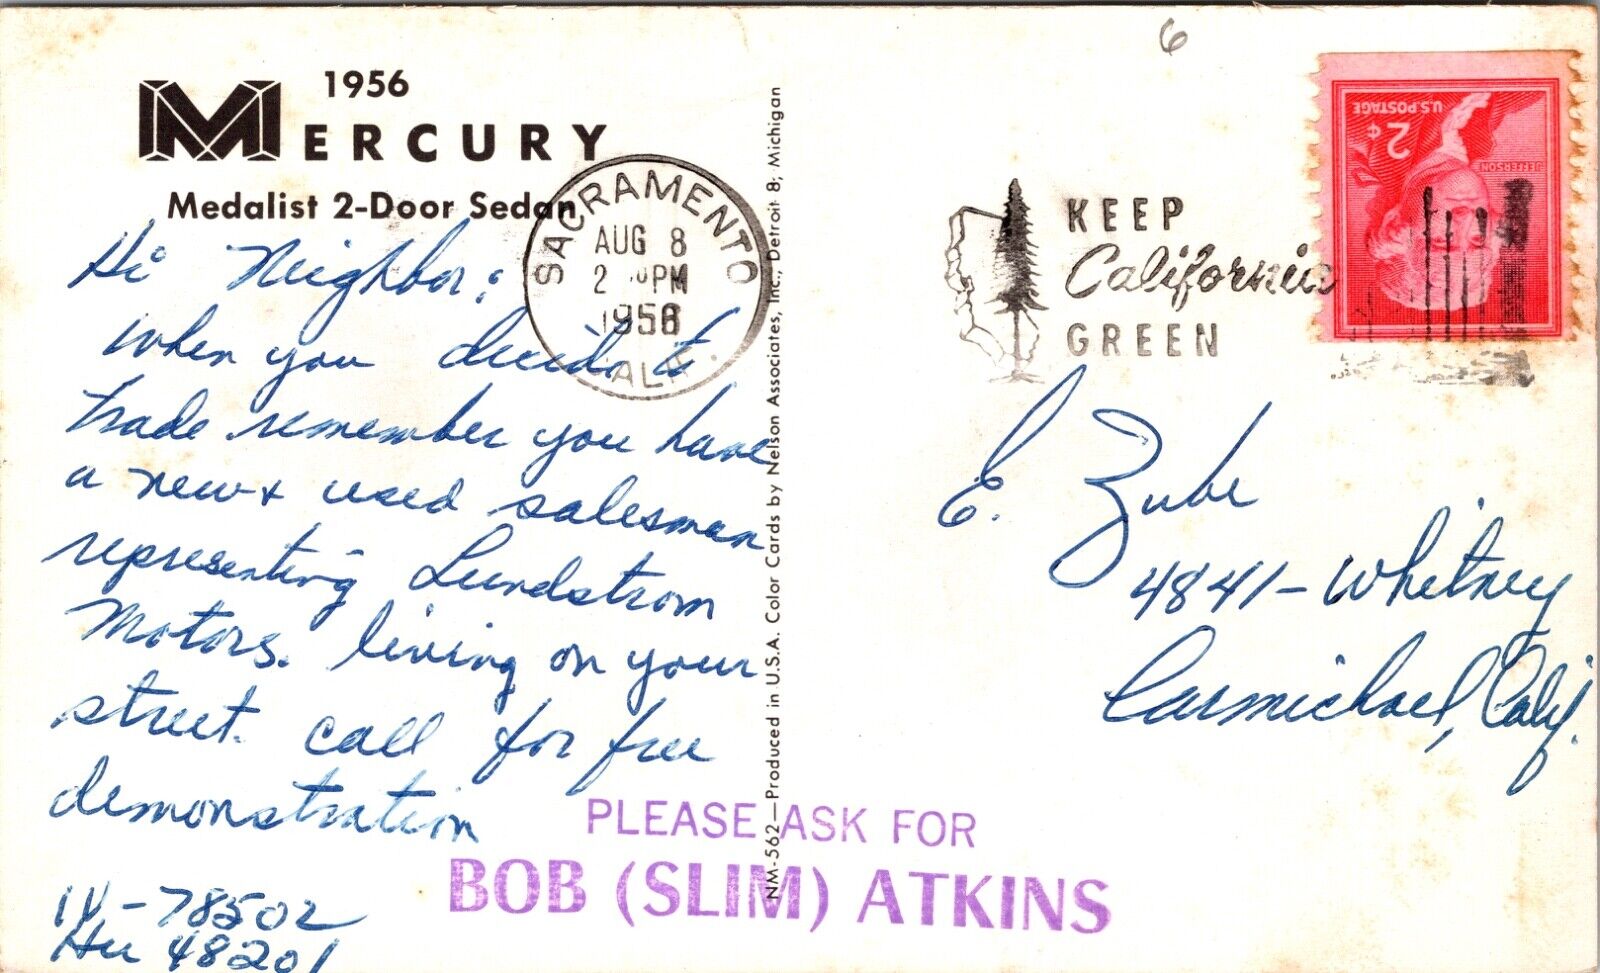 1956
MERCURY
Medalist 2-Door Sedan
Hi Neighbor:
When you decide to
trade remember you have
a new & used salesman
representing Lundstrom
Motors. living on your
street. call for free
demonstration
IV-78502
Hu 48201
PLEASE ASK FOR
BOB (SLIM) ATKINS
NM-562—Produced in U.S.A. Color Cards by Nelson Associates, Inc., Detroit 8, Michigan
SACRAMENTO
AUG 8
2 PM
1956
CALIF.
KEEP
California
GREEN
6
U.S. POSTAGE
2¢
JEFFERSON
E. Zube
4841-Whitney
Carmichael, Calif.